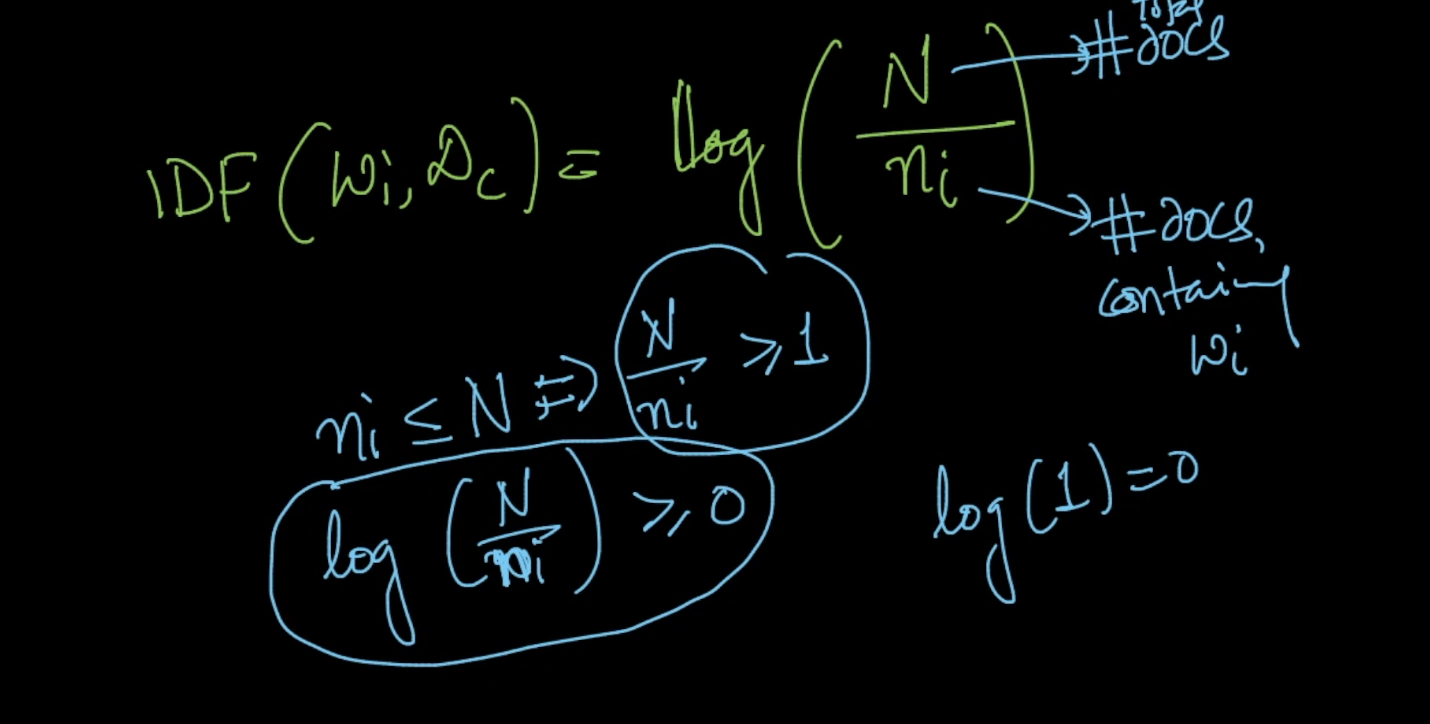 total
IDF(Wi, Dc) = log(N/ni)
→ #docs
→ #docs,
containing
Wi
ni ≤ N ⇒ N/ni ≥ 1
log(N/ni) ≥ 0
log(1)=0